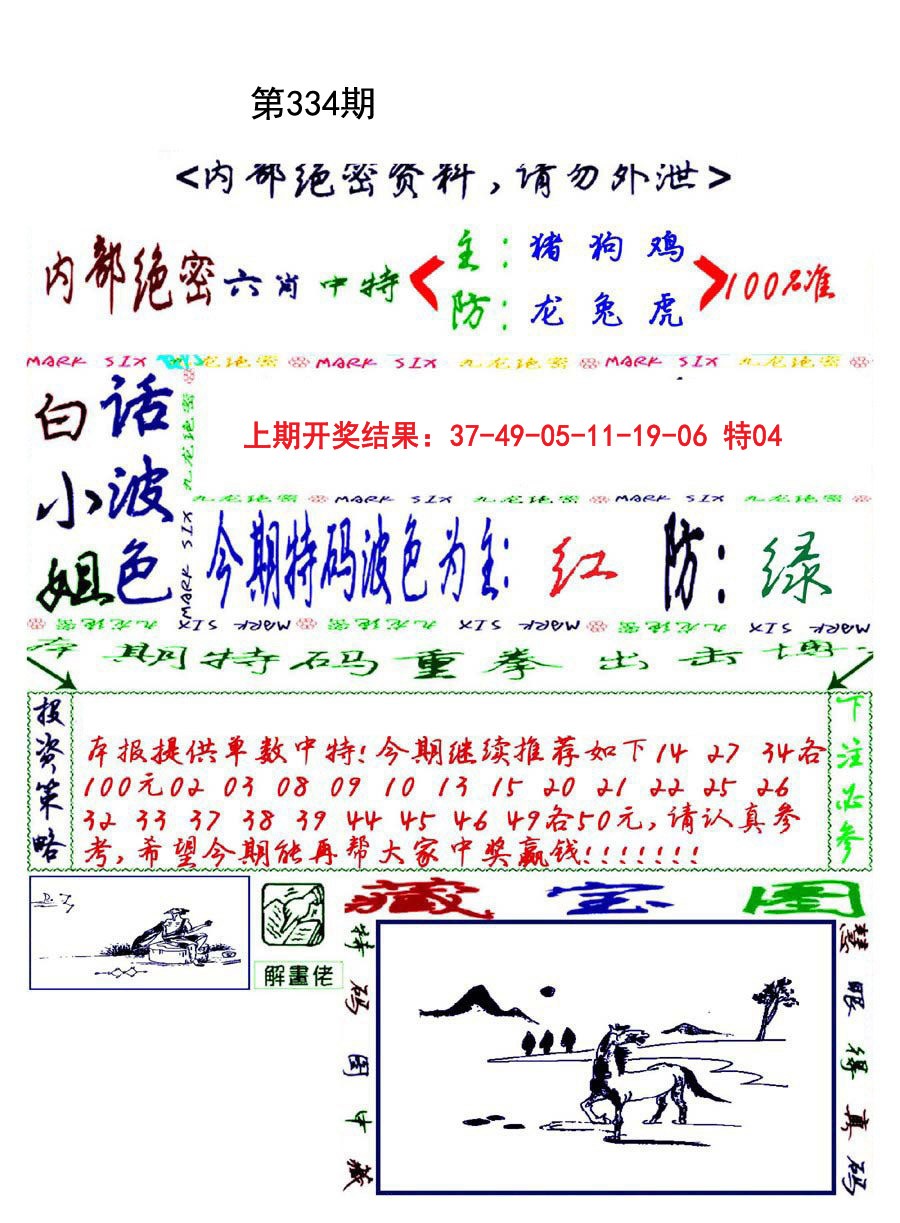 第334期
<内部绝密资料,请勿外泄>
内部绝密六肖中特
主:猪 狗 鸡
防:龙 兔 虎
100%准
MARK SIX 九龙绝密 MARK SIX 九龙绝密 MARK SIX 九龙绝密
白小姐
话波色
九龙绝密
MARK SIX
上期开奖结果：37-49-05-11-19-06 特04
九龙绝密 MARK SIX 九龙绝密 MARK SIX 九龙绝密
今期特码波色为主:红 防:绿
九龙绝密 MARK SIX 九龙绝密 MARK SIX 九龙绝密 MARK SIX
本期特码重拳出击博
投资策略
本报提供单数中特!今期继续推荐如下14 27 34各
100元02 03 08 09 10 13 15 20 21 22 25 26
32 33 37 38 39 44 45 46 49各50元,请认真参
考,希望今期能再帮大家中奖赢钱!!!!!!!
下注必参
解畫佬
藏宝图
特码图中藏
慧眼得真码